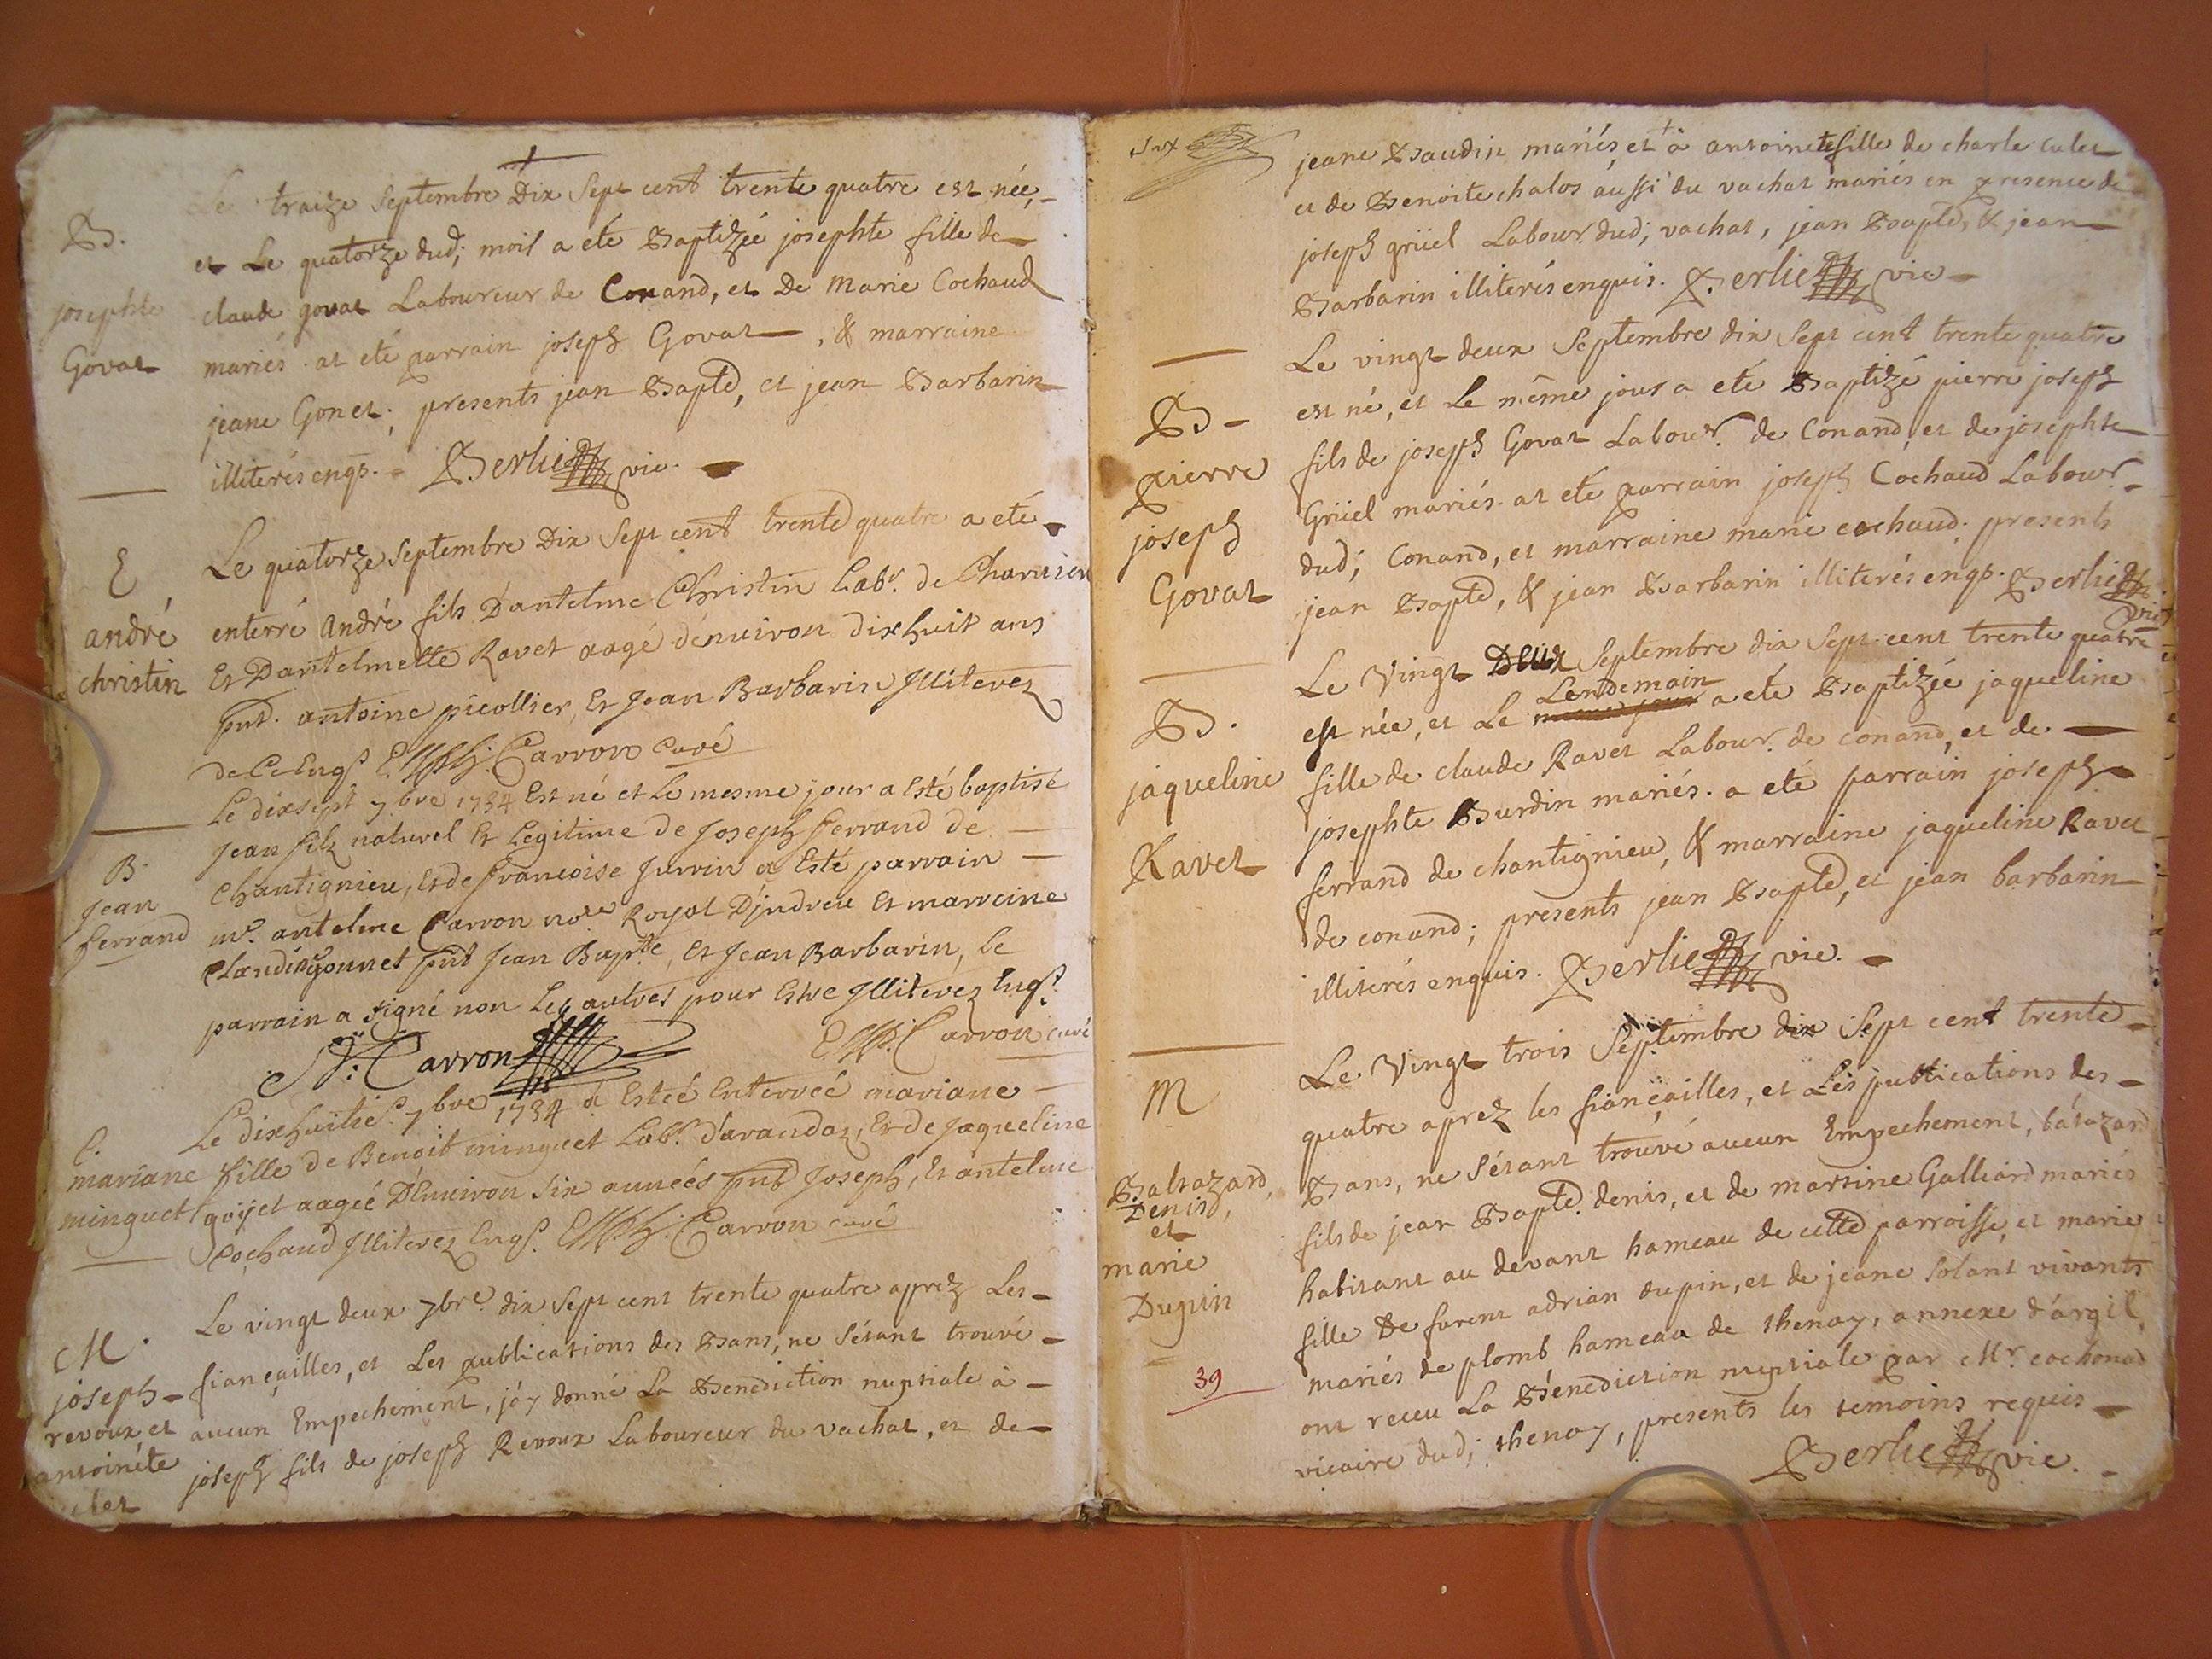 B.
josephte
Govat
Le traize Septembre Dix Sept cent trente quatre est née,
et Le quatorze dud; mois a eté Baptizée josephte fille de
claude govat Laboureur de Conand, et De Marie Cochaud
mariés. at eté parrain joseph Govat, & marraine
jeane Gonet; presents jean Bapte, et jean Barbarin
illiterés enqs. Berlie vic.
E
andré
christin
Le quatorze Septembre Dix Sept cent trente quatre a eté
enterré André fils D'antelme Christin Labr. de
Et Dantelmette Ravet aagé d'enuiron dixhuit ans
pnd. antoine picollier, Et Jean Barbarin Jlliterez
de Ce Enqs. Carron curé
B.
Jean
ferrand
Le dixsept 7.bre 1734 Est né et Le mesme jour a Esté baptisé
Jean filz naturel Et Legitime de Joseph ferrand de
Chantignieu, Et de francoise Juvvin a Esté parrain
mr. antelme Carron nore Royal D'jndrieu Et marreine
Claudine gonnet pnt Jean Bapte, Et Jean Barbarin, Le
parrain a signé non Les autres pour Estre Jlliterez Enqs.
Carron
Carron curé
E.
mariane
minguet
Le dixhuitie. 7.bre 1734 a Esteé Enterreé mariane
fille de Benoit minguet Labr. d'arandaz, Et de Jaqueline
goÿet aageé D'Enuiron six anneés pnt Joseph, Et antelme
Cochaud Jlliterez Enqs. Carron curé
M.
joseph
revoux et
antoinéte
culet
Le vingt deux 7bre. dix Sept cent trente quatre aprez Les
fiançailles, et Les publications des Bans, ne S'étant trouvé
aucun Empechement, j'ay donné La Benediction nuptiale à
joseph fils de joseph Revoux Laboureur du vachat, et de
jeane Baudin mariés, et à antoinete fille de charle culet
et de Benoite chalos aussi du vachat mariés en presence de
joseph grüel Labour. dud; vachat, jean Bapte, & jean
Barbarin illiterés enquis. Berlie vic
B
pierre
joseph
Govat
Le vingt deux Septembre dix Sept cent trente quatre
est né, et Le même jour a eté Baptizé pierre joseph
fils de joseph Govat Labour. de Conand, et de josephte
Grüel mariés. at eté parrain joseph Cochaud Labour.
dud; Conand, et marraine marie cochaud; presents
jean Bapte, & jean Barbarin illiterés enqs. Berlie
vic
B.
jaqueline
Ravet
Le Vingt Deux Septembre dix Sept cent trente quatre
est née, et Le Lendemain a eté Baptizée jaqueline
fille de claude Ravet Labour. de conand, et de
josephte Burdin mariés. a eté parrain joseph
ferrand de chantignieu, & marraine jaqueline Ravet
de conand; presents jean Bapte, et jean barbarin
illiterés enquis. Berlie vic.
M
Baltazard
Denis,
et
marie
Dupin
39
Le Vingt trois Septembre dix Sept cent trente
quatre aprez les fiançailles, et Les publications des
Bans, ne S'étant trouvé aucun Empechement, batazard
fils de jean Bapte. denis, et de martine Galliard mariés
habitant au devant hameau de cette parroisse, et marie
fille De furent adrian dupin, et de jeane solant vivants
mariés de plomb hameau de thenay, annexe d'argil,
ont receu La Bénediction nuptiale par Mr. cochonad
vicaire dud; thenay, presents les temoins requis
Berlie vic.